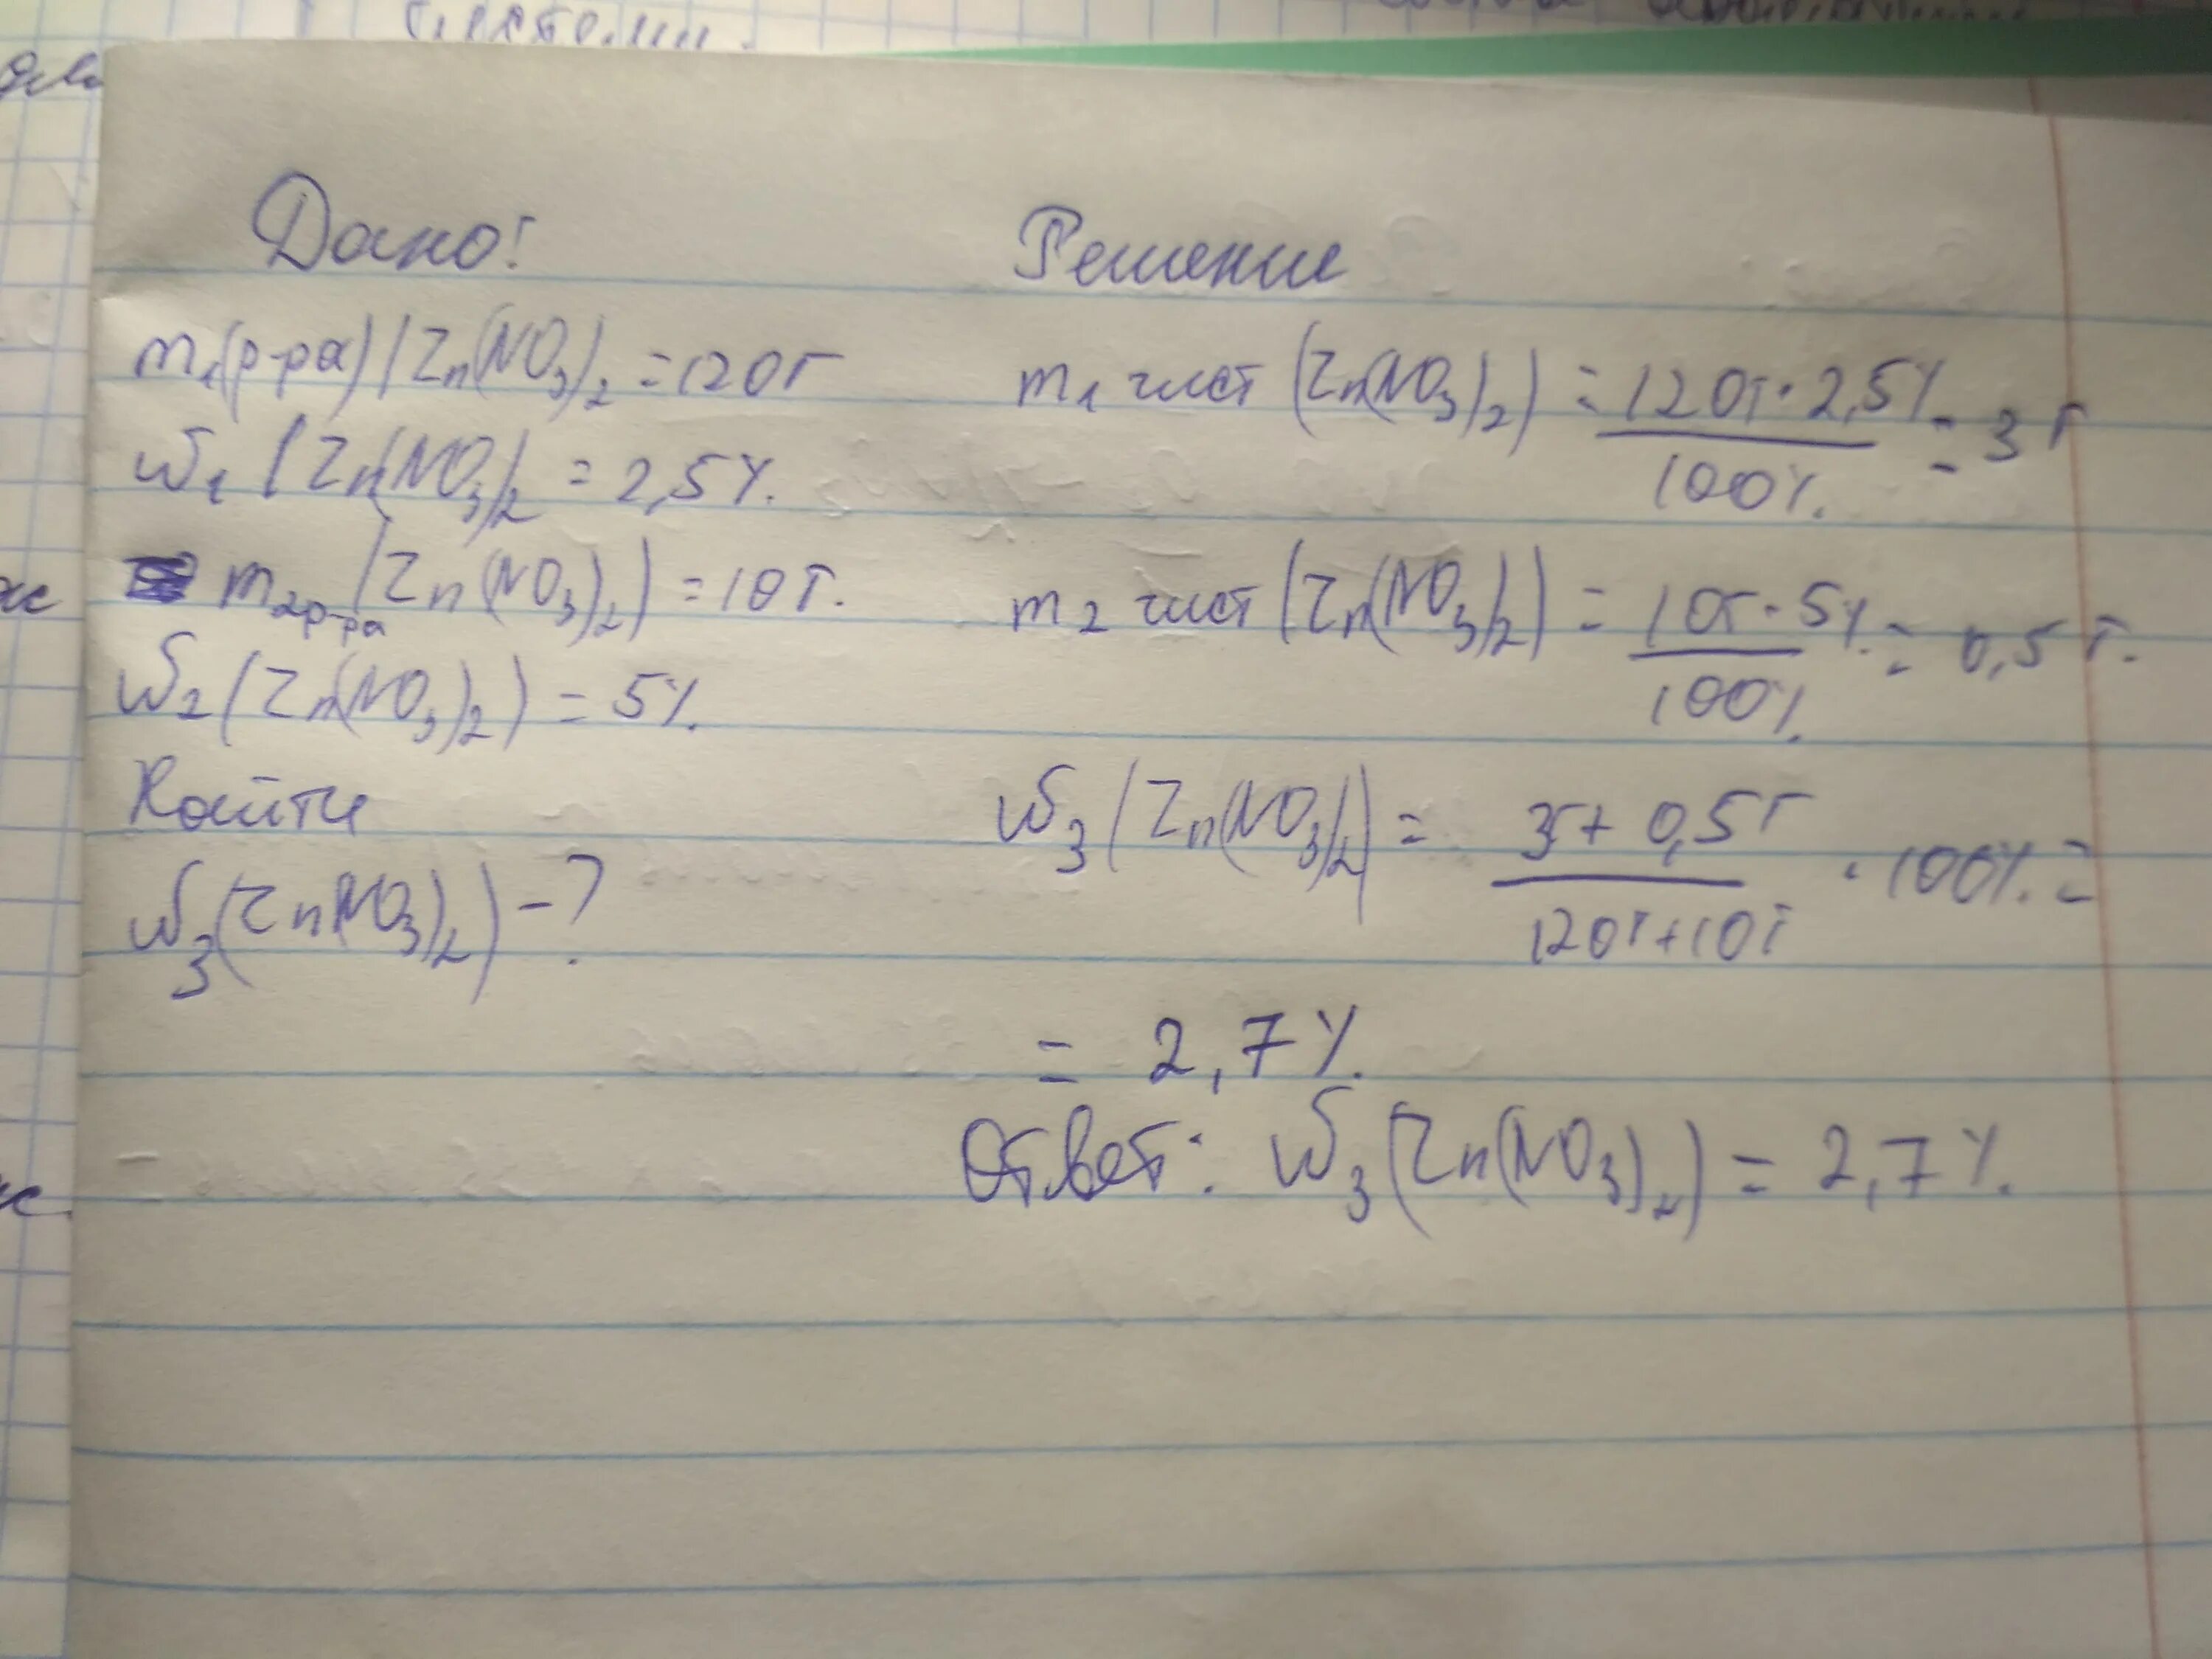 Дано:
m₁(р-ра)(Zn(NO₃)₂ = 120г
ω₁(Zn(NO₃)₂ = 2,5%.
m₂р-ра(Zn(NO₃)₂) = 10г.
ω₂(Zn(NO₃)₂) = 5%.
Найти
ω₃(Zn(NO₃)₂) - ?
Решение
m₁ чист (Zn(NO₃)₂) = 120г · 2,5% / 100%. = 3 г
m₂ чист (Zn(NO₃)₂) = 10г · 5% / 100%. = 0,5 г.
ω₃(Zn(NO₃)₂) = 3г + 0,5г / 120г + 10г · 100%. =
= 2,7%.
Ответ: ω₃(Zn(NO₃)₂) = 2,7%.